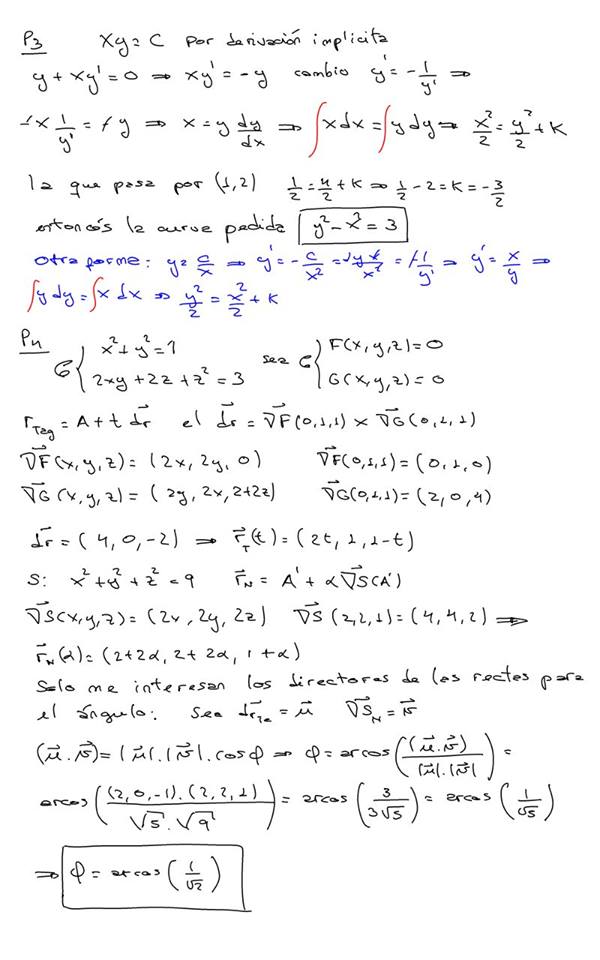 P3 xy = C por derivación implicita
y + xy' = 0 ⇒ xy' = -y cambio y' = -1/y' ⇒
-x 1/y' = -y ⇒ x = y dy/dx ⇒ ∫x dx = ∫y dy ⇒ x²/2 = y²/2 + K
la que pasa por (1,2) 1/2 = 4/2 + K ⇒ 1/2 - 2 = K = -3/2
entoncés la curva pedida y² - x² = 3
otra forma: y = C/x ⇒ y' = -C/x² = -yx/x² = -1/y' ⇒ y' = x/y ⇒
∫y dy = ∫x dx ⇒ y²/2 = x²/2 + K
P4
G { x² + y² = 1 sea G { F(x,y,z) = 0
2xy + 2z + z² = 3 G(x,y,z) = 0
r_Tag = A + t dr el dr = ∇F(0,1,1) × ∇G(0,1,1)
∇F(x,y,z) = (2x, 2y, 0) ∇F(0,1,1) = (0,1,0)
∇G(x,y,z) = (2y, 2x, 2+2z) ∇G(0,1,1) = (2,0,4)
dr = (4,0,-2) ⇒ r_T(t) = (2t, 1, 1-t)
S: x² + y² + z² = 9 r_N = A' + α∇S(A')
∇S(x,y,z) = (2x, 2y, 2z) ∇S(2,2,1) = (4,4,2) ⇒
r_N(α) = (2+2α, 2+2α, 1+α)
Solo me interesan los directores de las rectas para
el ángulo: sea dr_Tg = μ ∇S_N = v
(μ.v) = |μ|.|v|.cosφ ⇒ φ = arcos((μ.v)/|μ|.|v|) =
arcos((2,0,-1).(2,2,1)/√5.√9) = arcos(3/3√5) = arcos(1/√5)
⇒ φ = arcos(1/√2)